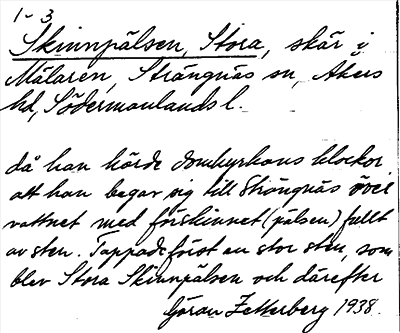 1-3
Skinnpälsen, Stora, skär i
Mälaren, Strängnäs sn, Åkers
hd, Södermanlands l.
då han hörde domkyrkans klockor
att han begav sig till Strängnäs över
vattnet med förskinnet (pälsen) fullt
av sten. Tappade först en stor sten, som
blev Stora Skinnpälsen och därefter
Göran Zetterberg 1938.